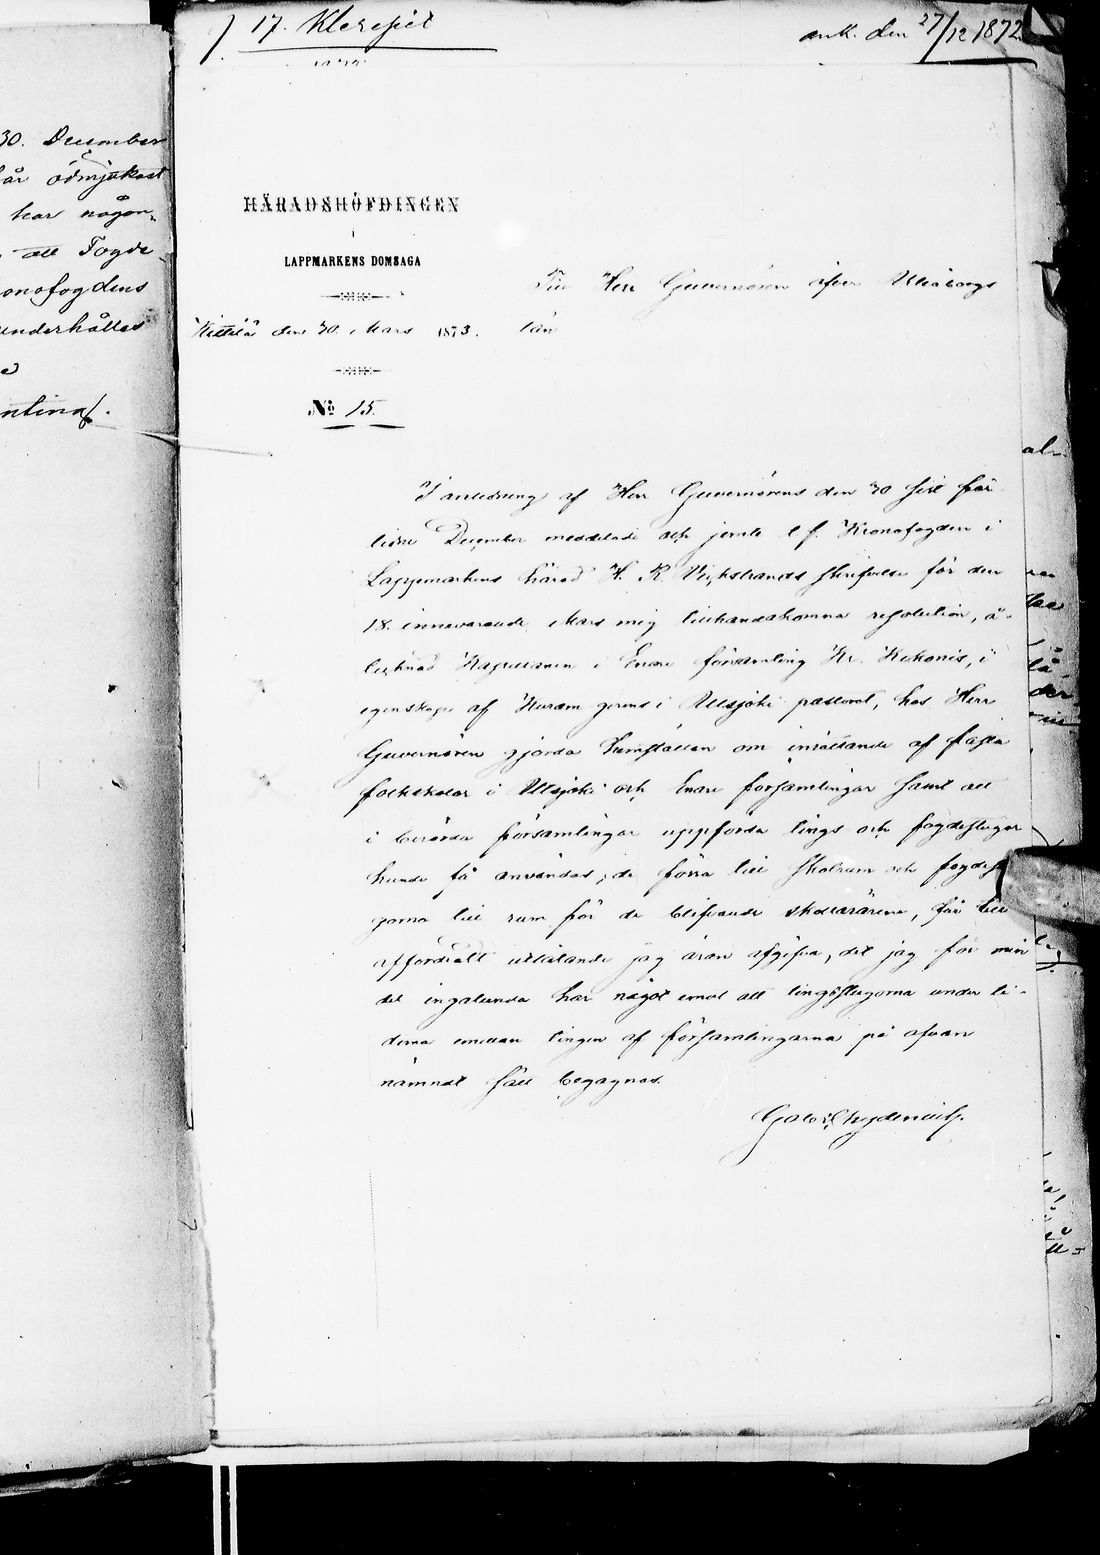 30. December
får ödmjukast
har någon-
att Fogde-
onofogdens
underhålles
17. Kleresiet
ank. den 27/12 1872
HÄRADSHÖFDINGEN
I
LAPPMARKENS DOMSAGA
Kittilä den 30 Mars 1873.
No 15.
Till Herr Guvernören öfver Uleåborgs
län
I anledning af Herr Guvernörens den 30 sist för-
lidne December meddelade och jemte t. f. Kronofogden i
Lappmarkens härad H. K. skrifvelse för den
18. innevarande Mars mig tillhandakomna resolution, å
Kapellanen i Enare församling Kr. i
egenskap af i Utsjoki pastorat, hos Herr
Guvernören gjorda hemställan om inrättande af fasta
folkskolor i Utsjoki och Enare församlingar samt att
i berörda församlingar uppförda tings och fogdestugor
kunde få användas, de förra till skolrum och fogdes
gorna till rum för de blifvande skollärarene, får
affordradt utlåtande jag äran afgifva, det jag för min
del ingalunda har något emot att tingsstugorna under ti-
derna emellan tingen af församlingarna på ofvan
nämndt sätt begagnas.